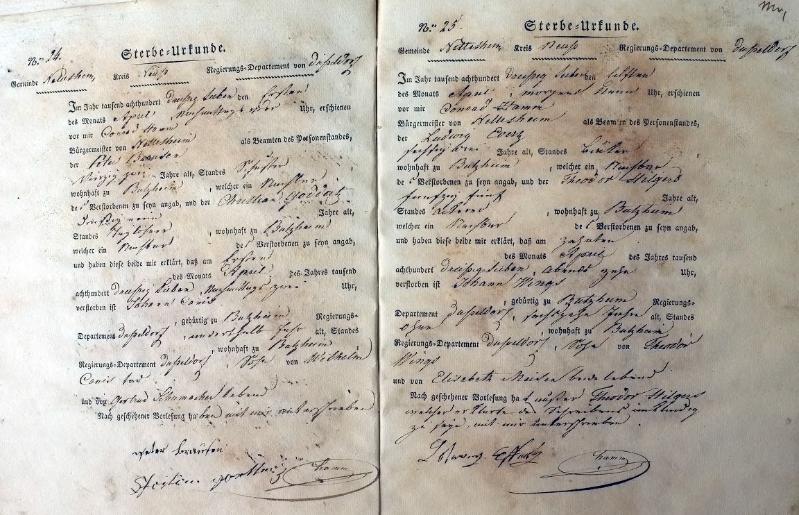 Nro 24.
Sterbe-Urkunde.
Gemeinde Nettesheim Kreis Neuss Regierungs-Departement von Düsseldorf
Im Jahr tausend achthundert dreißig sieben den Ersten
des Monats April Nachmittags vier Uhr, erschienen
vor mir Conrad Hamm
Bürgermeister von Nettesheim als Beamten des Personenstandes,
der Peter
vierzig zwei Jahre alt, Standes
wohnhaft zu Butzheim, welcher ein Nachbar
des Verstorbenen zu seyn angab, und der Christian
dreißig neun Jahre alt,
Standes Tagelöhner, wohnhaft zu Butzheim
welcher ein Nachbar des Verstorbenen zu seyn angab,
und haben diese beide mir erklärt, daß am Ersten
des Monats April des Jahres tausend
achthundert dreißig sieben, Nachmittags zwei Uhr,
verstorben ist Johann
, gebürtig zu Butzheim Regierungs-
Departement Düsseldorf, anderthalb Jahr alt, Standes
, wohnhaft zu Butzheim
Regierungs-Departement Düsseldorf, Sohn von Wilhelm
und von Gertrud Schumacher lebend
Nach geschehener Vorlesung haben mit mir unterschrieben
Peter
Hamm
Nro 25
Sterbe-Urkunde.
Gemeinde Nettesheim Kreis Neuss Regierungs-Departement von Düsseldorf
Im Jahr tausend achthundert dreißig sieben den eilften
des Monats April, morgens neun Uhr, erschienen
vor mir Conrad Hamm
Bürgermeister von Nettesheim als Beamten des Personenstandes,
der Ludwig
sechszig drei Jahre alt, Standes
wohnhaft zu Butzheim, welcher ein Nachbar
des Verstorbenen zu seyn angab, und der Theodor Hilgers
fünfzig fünf Jahre alt,
Standes Ackerer, wohnhaft zu Butzheim
welcher ein Nachbar des Verstorbenen zu seyn angab,
und haben diese beide mir erklärt, daß am zehnten
des Monats April des Jahres tausend
achthundert dreißig sieben, Abends zehn Uhr,
verstorben ist Johann Wings
, gebürtig zu Butzheim Regierungs-
Departement Düsseldorf, sechszehn Jahre alt, Standes
ohne, wohnhaft zu Butzheim
Regierungs-Departement Düsseldorf, Sohn von Theodor
Wings
und von Elisabeth beide lebend
Nach geschehener Vorlesung hat außer Theodor Hilgers
welcher erklärte des Schreibens unkundig
zu seyn, mit mir unterschrieben
Hamm